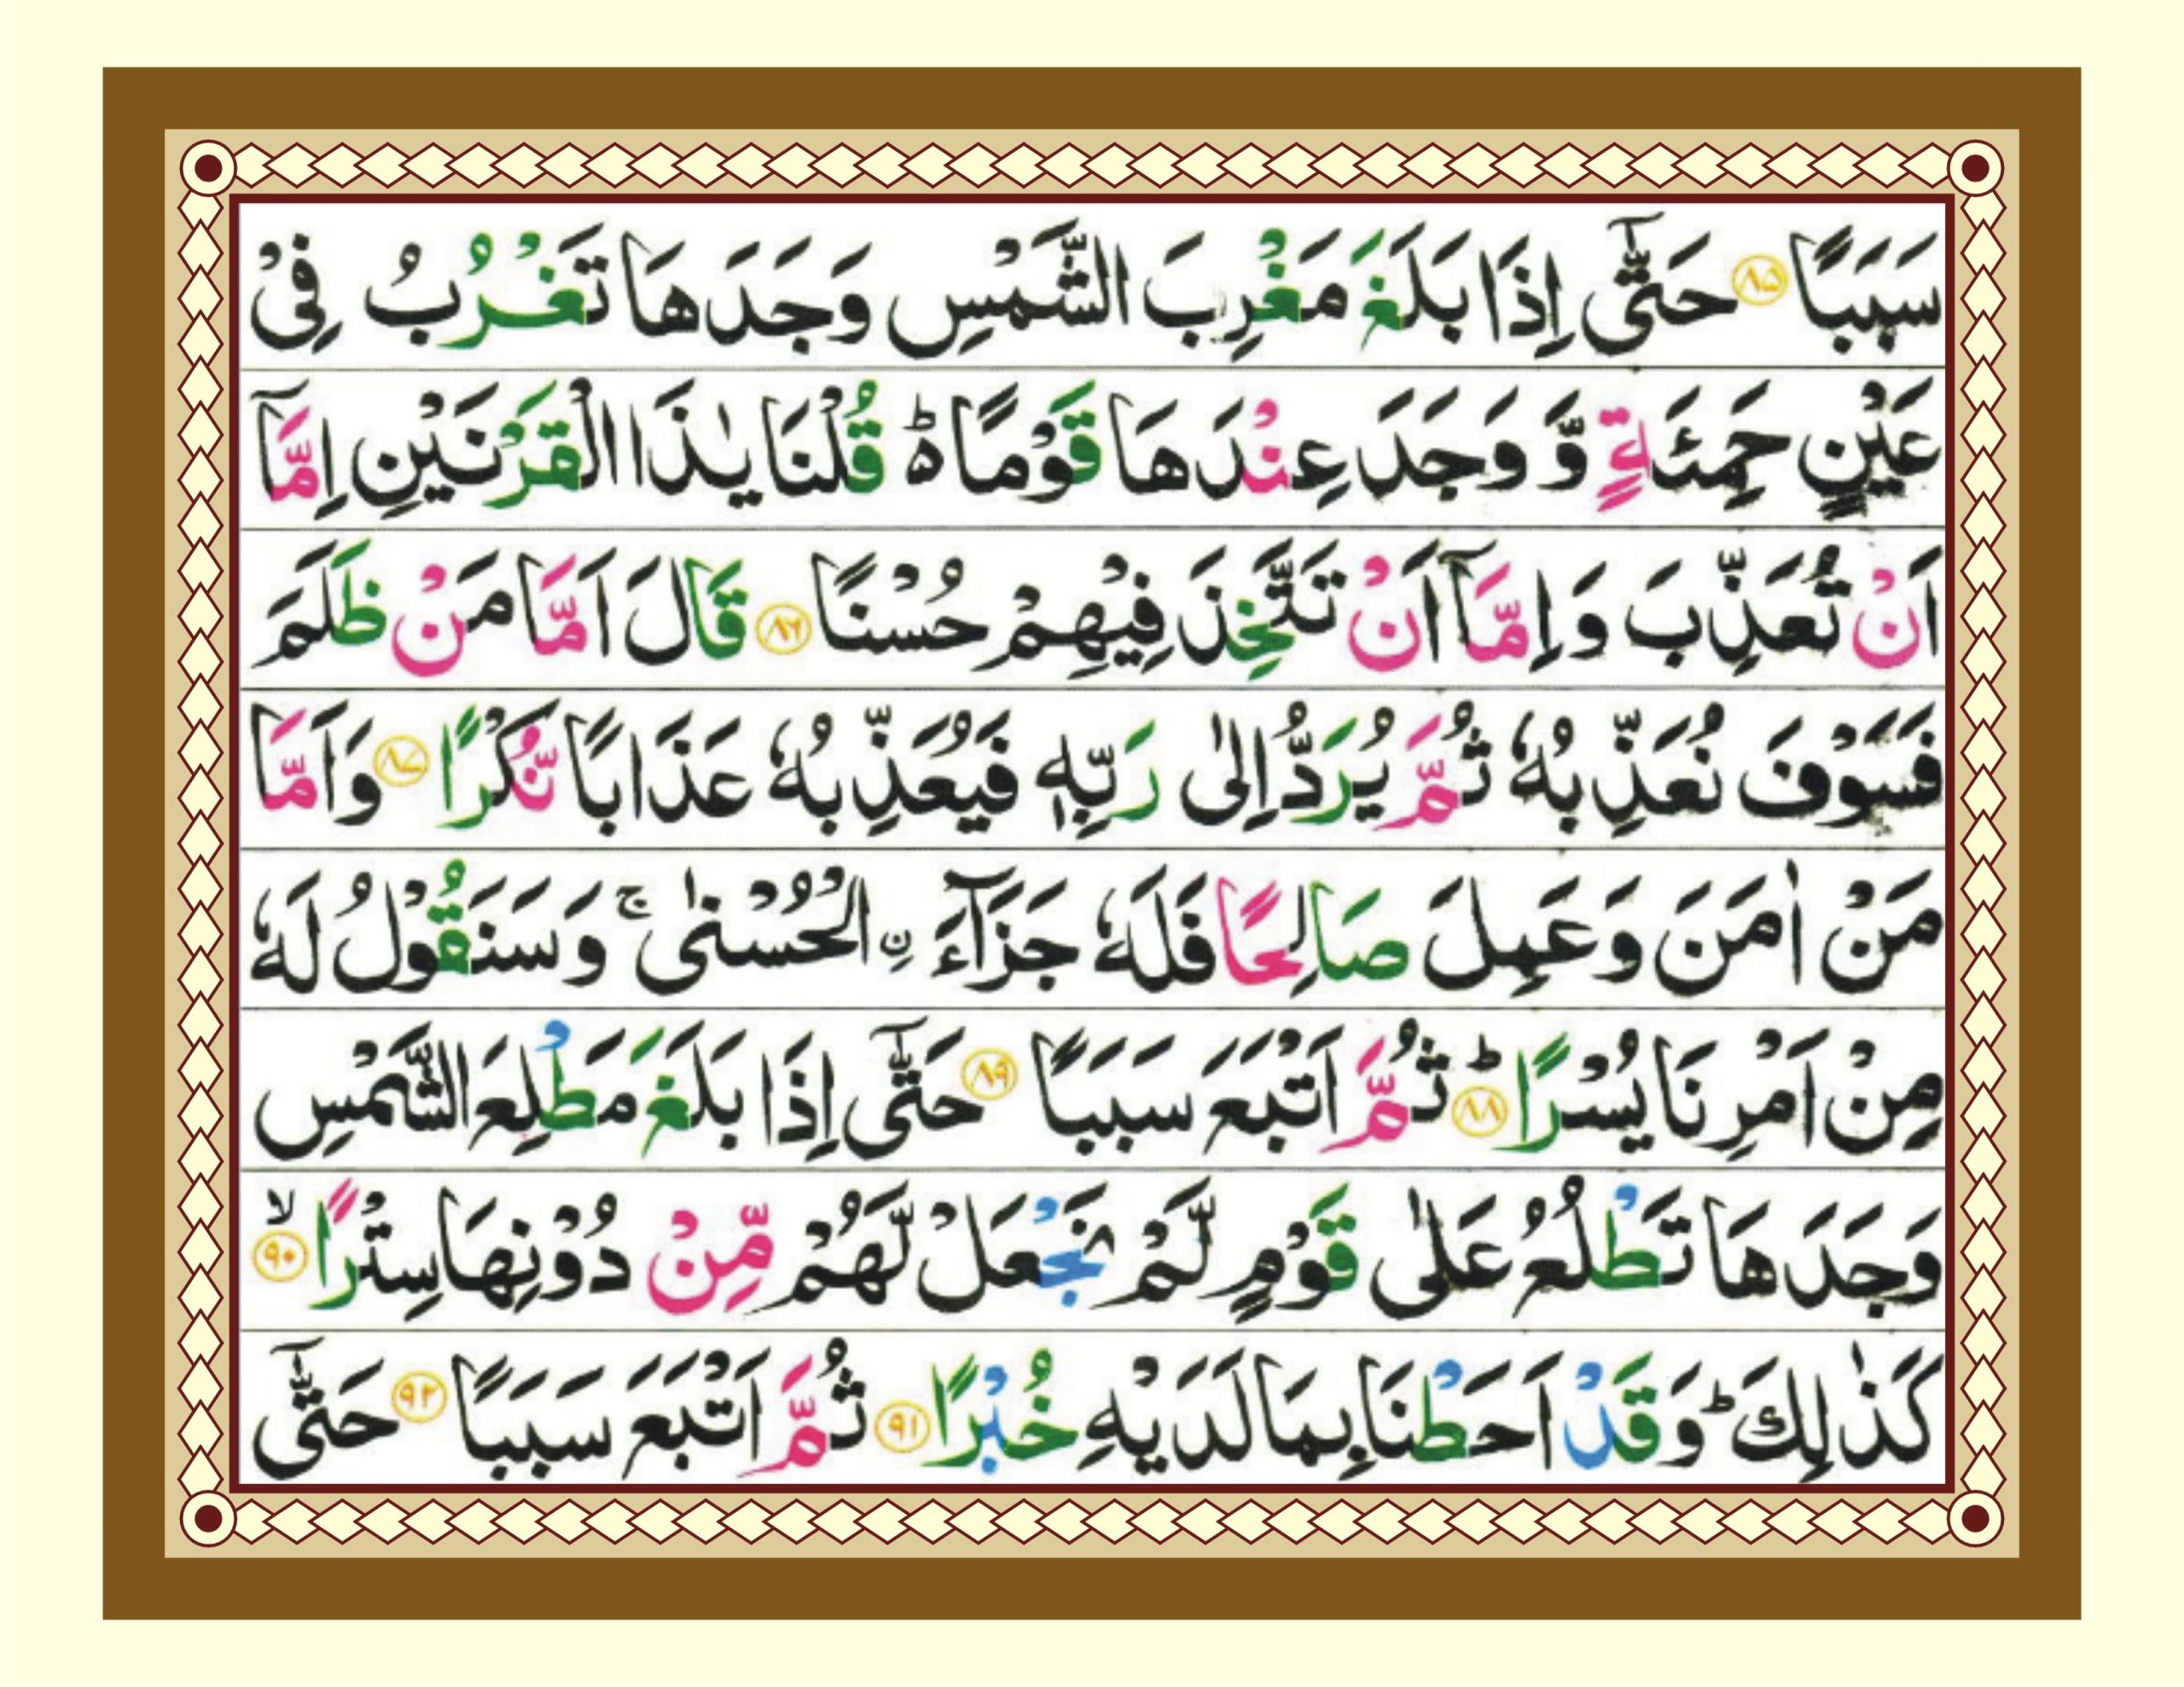 سَبَبًا ﴿۸۵﴾ حَتّٰۤى اِذَا بَلَغَ مَغْرِبَ الشَّمْسِ وَجَدَهَا تَغْرُبُ فِيْ
عَيْنٍ حَمِئَةٍ وَّ وَجَدَ عِنْدَهَا قَوْمًا ؕ۬ قُلْنَا يٰذَا الْقَرْنَيْنِ اِمَّاۤ
اَنْ تُعَذِّبَ وَاِمَّاۤ اَنْ تَتَّخِذَ فِيْهِمْ حُسْنًا ﴿۸۶﴾ قَالَ اَمَّا مَنْ ظَلَمَ
فَسَوْفَ نُعَذِّبُهٗ ثُمَّ يُرَدُّ اِلٰى رَبِّهٖ فَيُعَذِّبُهٗ عَذَابًا نُّكْرًا ﴿۸۷﴾ وَاَمَّا
مَنْ اٰمَنَ وَعَمِلَ صَالِحًا فَلَهٗ جَزَآءَ ۨالْحُسْنٰى ۚ وَسَنَقُوْلُ لَهٗ
مِنْ اَمْرِنَا يُسْرًا ؕ﴿۸۸﴾ ثُمَّ اَتْبَعَ سَبَبًا ﴿۸۹﴾ حَتّٰۤى اِذَا بَلَغَ مَطْلِعَ الشَّمْسِ
وَجَدَهَا تَطْلُعُ عَلٰى قَوْمٍ لَّمْ نَجْعَلْ لَّهُمْ مِّنْ دُوْنِهَا سِتْرًا ۙ﴿۹۰﴾
كَذٰلِكَ ؕ وَقَدْ اَحَطْنَا بِمَا لَدَيْهِ خُبْرًا ﴿۹۱﴾ ثُمَّ اَتْبَعَ سَبَبًا ﴿۹۲﴾ حَتّٰۤى